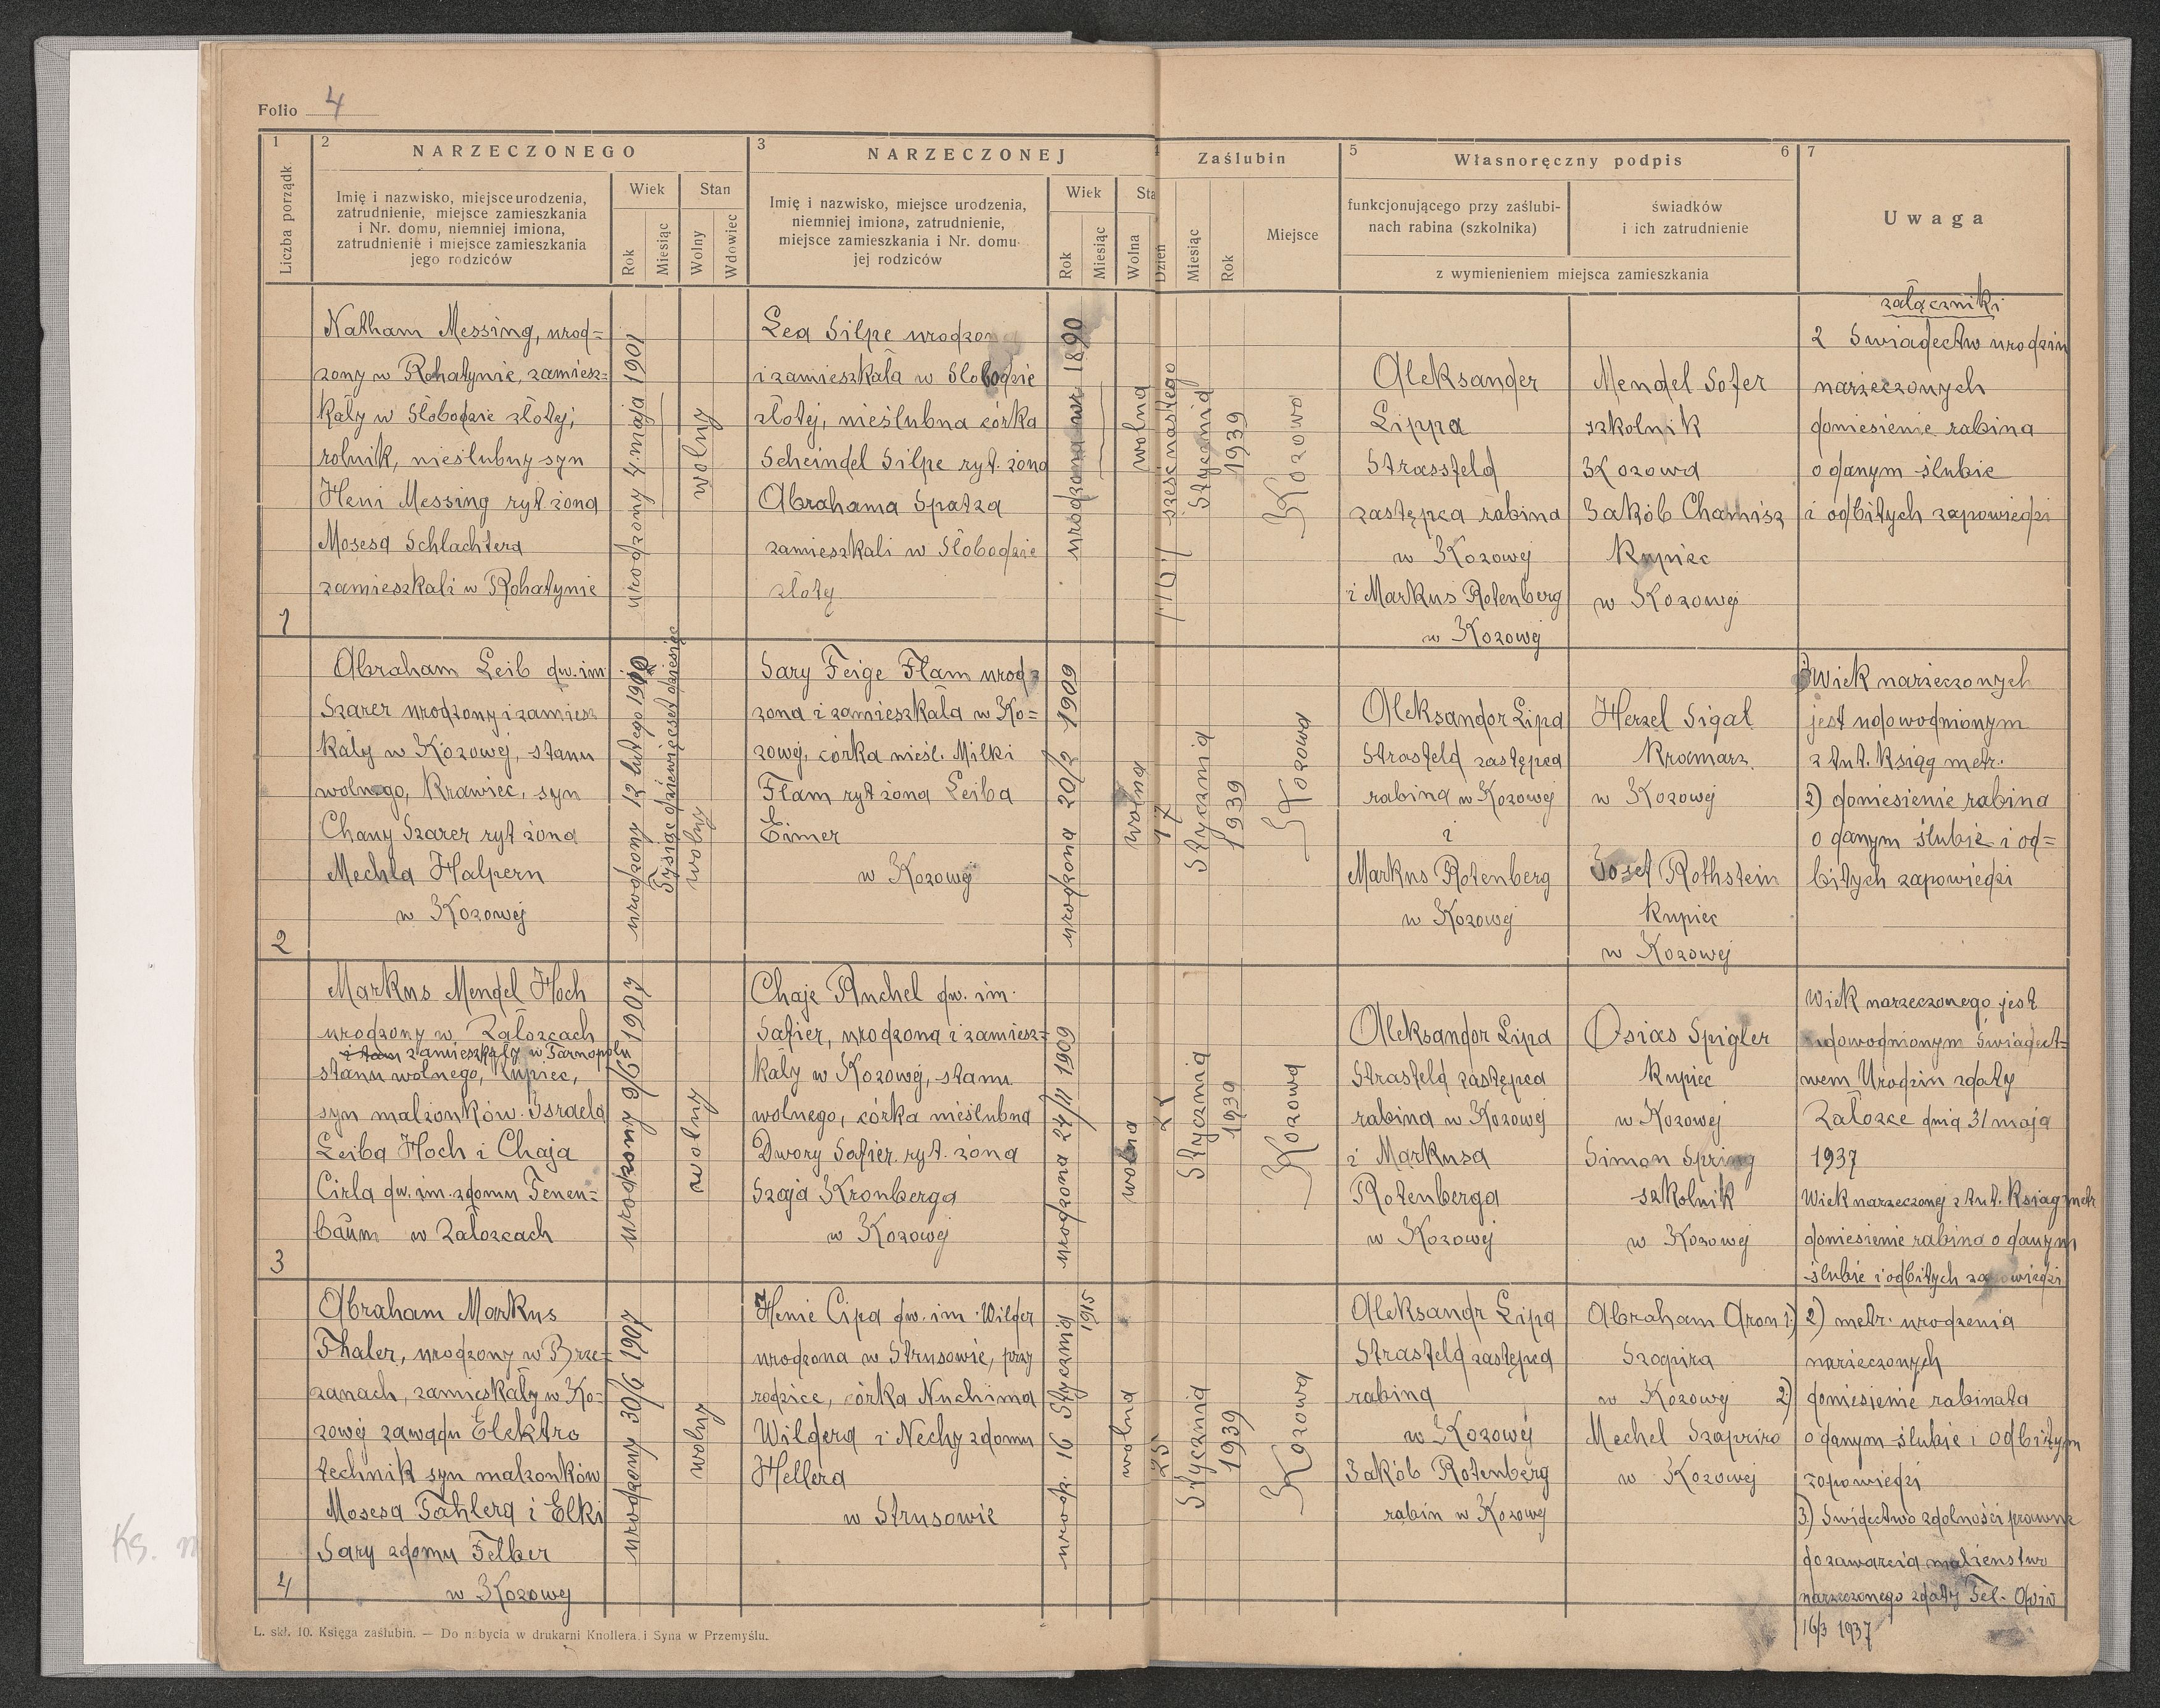 Folio 4
1
Liczba porządk
2
NARZECZONEGO
Imię i nazwisko, miejsce urodzenia,
zatrudnienie, miejsce zamieszkania
i Nr. domu, niemniej imiona,
zatrudnienie i miejsce zamieszkania
jego rodziców
Wiek
Rok
Miesiąc
Stan
Wolny
Wdowiec
3
NARZECZONEJ
Imię i nazwisko, miejsce urodzenia,
niemniej imiona, zatrudnienie,
miejsce zamieszkania i Nr. domu
jej rodziców
Wiek
Rok
Miesiąc
Sta
Wolna
4
Zaślubin
Dzień
Miesiąc
Rok
Miejsce
5
Własnoręczny podpis
6
funkcjonującego przy zaślubi-
nach rabina (szkolnika)
świadków
i ich zatrudnienie
z wymienieniem miejsca zamieszkania
7
Uwaga
1
Natham Messing, urod=
zony w Rohatynie, zamiesz=
kały w Słobodzie złotej,
rolnik, nieślubny syn
Heni Messing ryt żona
Mosesa Schlachtera
zamieszkali w Rohatynie
urodzony 4 maja 1901
wolny
Lea Silpe urodzon
i zamieszkała w Słobodzie
złotej, nieślubna córka
Scheindel Silpe ryt. żona
Abrahama Spatza
zamieszkali w Słobodzie
złotej
urodzona we 1890
wolna
/16/ szesnastego
Stycznia
1939
Kozowa
Aleksander
Lippa
Strassfeld
zastępca rabina
w Kozowej
i Markus Rotenberg
w Kozowej
Mendel Sofer
szkolnik
Kozowa
Jakób Chamisz
Kupiec
w Kozowej
załączniki
2 Swiadectw urodzin
narzeczonych
doniesienie rabina
o danym ślubie
i odbitych zapowiedzi
2
Abraham Leib dw. im
Szarer urodzony i zamiesz
kały w Kozowej, stanu
wolnego, Krawiec, syn
Chany Szarer ryt żona
Mechla Halpern
w Kozowej
urodzony 12 lutego 1900
Tysiąc dziewięćset dziesięć
wolny
Sary Feige Flam urod
zona i zamieszkała w Ko=
zowej, córka nieśl. Milki
Flam ryt żona Leiba
Eimer
w Kozowej
urodzona 20/2 1909
wolna
17
Stycznia
1939
Kozowa
Aleksandor Lipa
Strasfeld zastępca
rabina w Kozowej
i
Markus Rotenberg
w Kozowej
Herzel Sigal
Kramarz
w Kozowej
Josef Rothstein
Kupiec
w Kozowej
Wiek narzeczonych
jest udowodnionym
z tut. Ksiąg metr.
2) doniesienie rabina
o danym ślubie i od=
bitych zapowiedzi
3
Markus Mendel Hoch
urodzony w Załozcach
i tam zamieszkały w Tarnopolu
stanu wolnego, Kupiec,
syn małżonków Israela
Leiba Hoch i Chaja
Cirla dw. im. zdomu Tenen=
baum w Załozcach
urodzony 9/6 1907
wolny
Chaje Ruchel dw. im.
Safier, urodzona i zamiesz=
kały w Kozowej, stanu
wolnego, córka nieślubna
Dwory Safier ryt. żona
Szaja Kronberga
w Kozowej
urodzona 24/11 1909
wolna
22
Stycznia
1939
Kozowa
Aleksandor Lipa
Strasfeld zastępca
rabina w Kozowej
i Markusa
Rotenberga
w Kozowej
Osias Spigler
Kupiec
w Kozowej
Simon Spring
szkolnik
w Kozowej
Wiek narzeczonego jest
udowodnionym świadect=
wem Urodzin zdaty
Załozce dnia 31 maja
1937
Wiek narzeczonej z tut. Ksiąg metr
doniesienie rabina o danym
ślubie i odbitych zapowiedzi
4
Abraham Markus
Thaler, urodzony w Brze=
żanach, zamieskały w Ko=
zowej zawodu Elektro
technik syn malżonków
Mosesa Tahlera i Elki
Sary zdomu Felber
w Kozowej
urodzony 30/6 1907
wolny
Henie Cipa dw. im. Wilder
urodzona w Strusowie, przy
rodzice, córka Nuchima
Wildera i Nechy zdomu
Hellera
w Strusowie
urodz. 16 Stycznia
1915
wolna
25
Stycznia
1939
Kozowa
Aleksandr Lipa
Strasfeld zastępca
rabina
w Kozowej
Jakób Rotenberg
rabin w Kozowej
Abraham Aron
Szapira
w Kozowej
Mechel Szapiro
w Kozowej
1) 2) metr. urodzenia
narzeczonych
2) doniesienie rabinata
o danym ślubie i odbitym
zapowiedzi
3) Swidectwo zdolności prawne
do zawarcia malżenstwo
narzeczonego zdaty Tel. Awiv
16/3 1937
L. skł. 10. Księga zaślubin. — Do nabycia w drukarni Knollera i Syna w Przemyślu.
Ks.